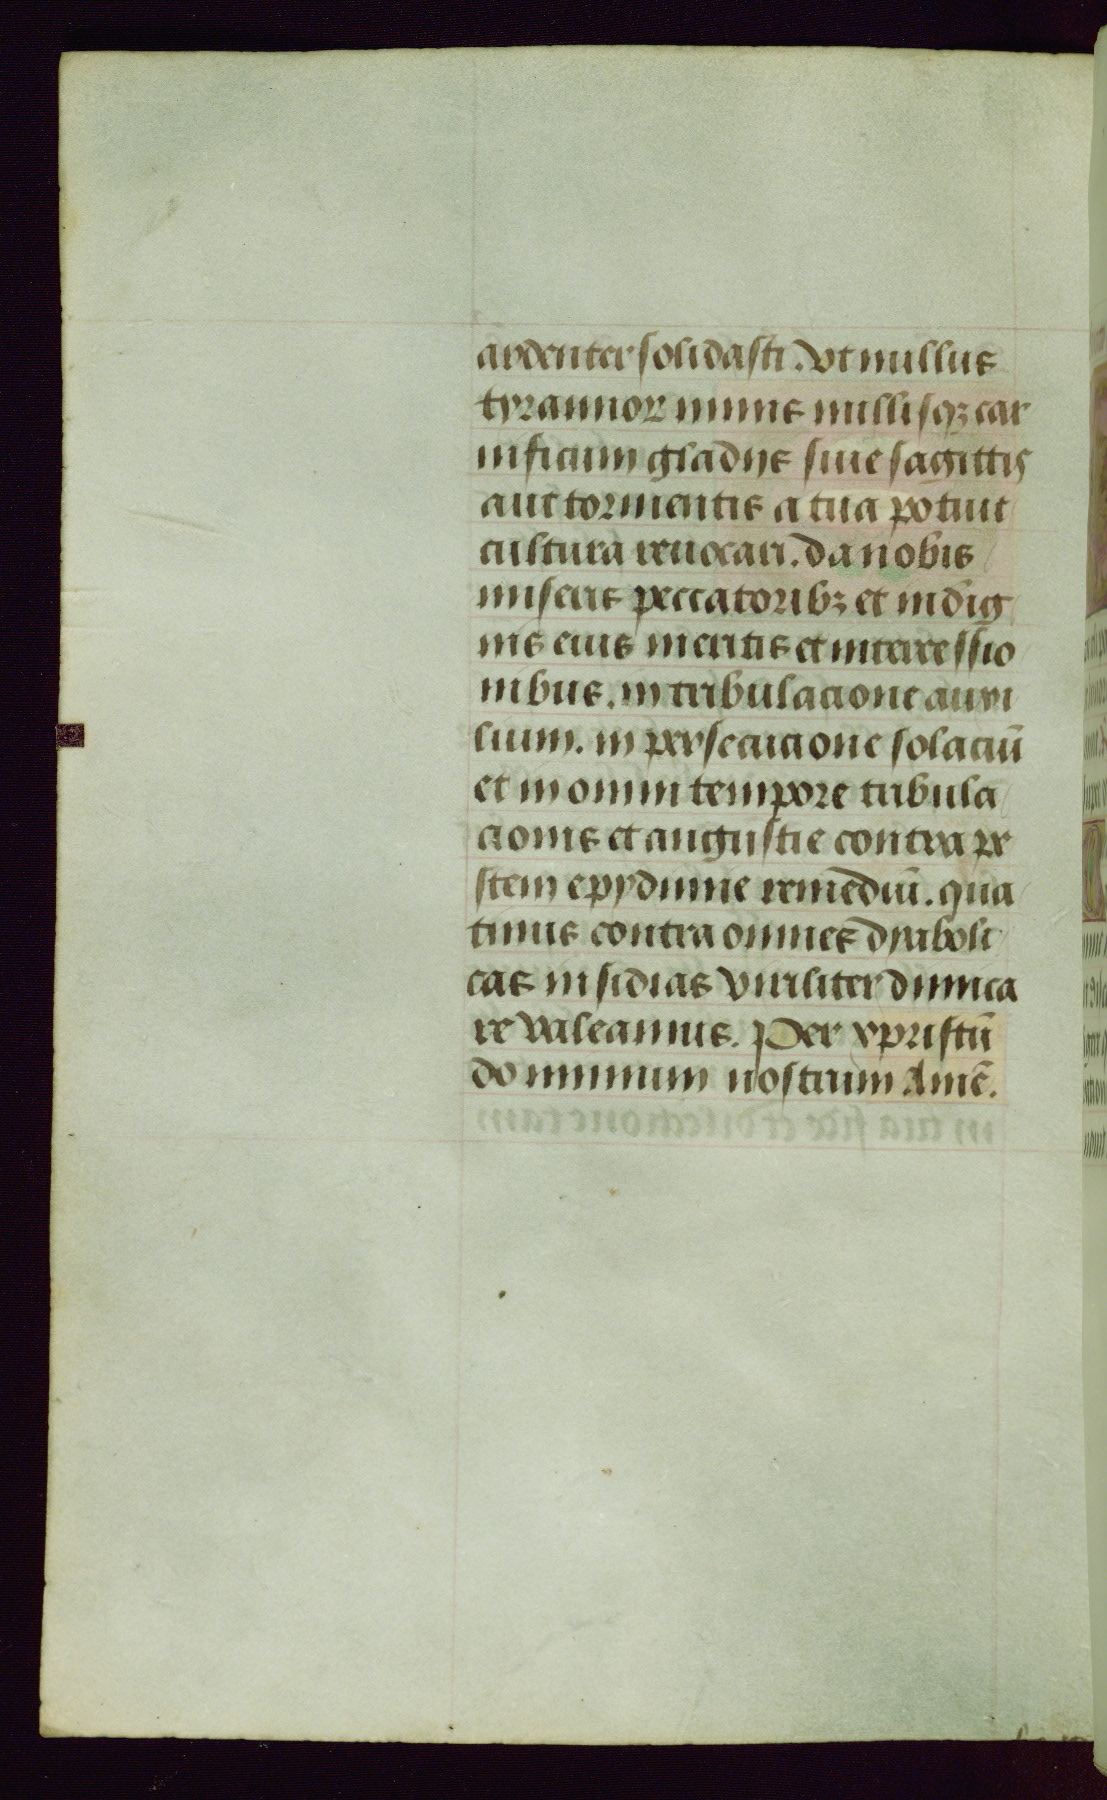 ardenter solidasti. vt nullus
tyrannorꝝ minis nullisqꝫ car
nificum gladijs siue sagittis
aut tormentis a tua potuit
cultura reuocari. da nobis
miseris peccatoribꝫ et indig
nis eius meritis et intercessio
nibus. in tribulacione auxi
lium. in persecucione solaciū
et in omni tempore tribula
cionis et angustie contra pe
stem epydimie remediū. qua
tinus contra omnes dyaboli
cas insidias viriliter dimica
re valeamus. Per xpristū
dominum nostrum Amē.